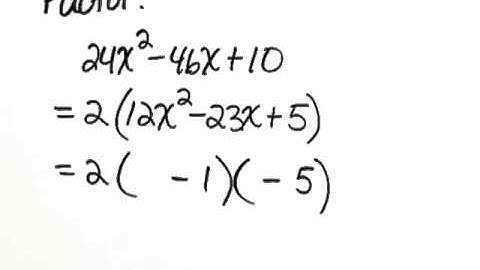 Factor.
24x²-46x+10
=2(12x²-23x+5)
=2( -1)( -5)